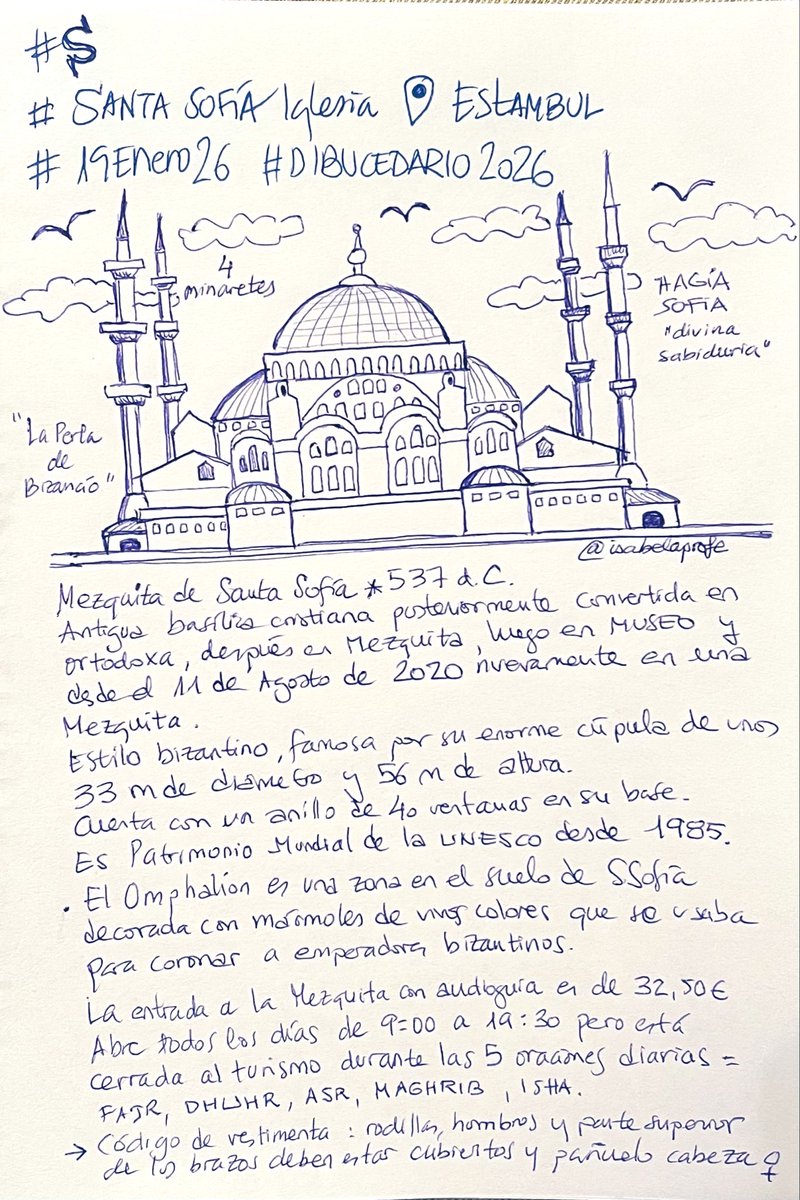 #S
# SANTA SOFÍA Iglesia ESTAMBUL
# 19Enero26 #DIBUCEDARIO2026
4
minaretes
HAGIA
SOFIA
"divina
sabiduria"
"La Perla
de
Bizancio"
@isabelaprofe
Mezquita de Santa Sofía *537 d.C.
Antigua basílica cristiana posteriormente convertida en
ortodoxa, después en Mezquita, luego en MUSEO y
desde el 11 de Agosto de 2020 nuevamente en una
Mezquita.
Estilo bizantino, famosa por su enorme cúpula de unos
33 m de diámetro y 56 m de altura.
Cuenta con un anillo de 40 ventanas en su base.
Es Patrimonio Mundial de la UNESCO desde 1985.
. El Omphalion es una zona en el suelo de SSofía
decorada con mármoles de vivos colores que se usaba
para coronar a emperadores bizantinos.
La entrada a la Mezquita con audioguía es de 32,50€
Abre todos los días de 9:00 a 19:30 pero está
cerrada al turismo durante las 5 oraciones diarias =
FAJR, DHUHR, ASR, MAGHRIB, ISHA.
→ Código de vestimenta: rodillas, hombros y parte superior
de los brazos deben estar cubiertos y pañuelo cabeza ♀